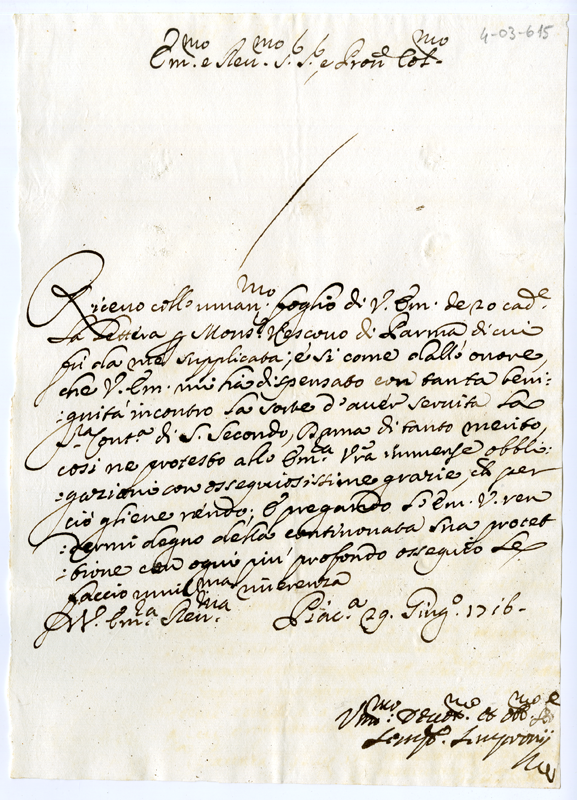 4-03-615
Em.mo e Reu.mo S.r S.r, e Pron Col.mo
Riceuo coll'uman.mo foglio di V. Em. de 20 cad.e
La Lettera p Mons.r Vescouo di Parma di cui
fù da me supplicata; e si come dall'onore,
che V. Em. mi hà dispensato con tanta beni:
:gnità incontro La sorte d'auer seruita La
S.ra Cont.a di S. Secondo, Dama di tanto merito,
così ne protesto all' Em.za Vra immense obbli:
:gazioni con ossequiosissime grazie, ch per
ciò gliene rendo; E pregando L'Em. V. ren
:dermi degno della continouata sua protet
:tione con ogni più profondo ossequio Le
faccio umil.ma riuerenza
D V. Em.za Reu.ma Piac.a 29. Giug.o 1716.
Vm.mo Deuot.mo et obb.mo